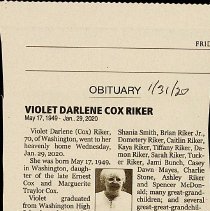 FRID
OBITUARY 1/31/20
VIOLET DARLENE COX RIKER
May 17, 1949 - Jan. 29, 2020
Violet Darlene (Cox) Riker,
70, of Washington, went to her
heavenly home Wednesday,
Jan. 29, 2020.
She was born May 17, 1949,
in Washington, daugh-
ter of the late Ernest
Cox and Marguerite
Traylor Cox.
Violet graduated
from Washington High
Shania Smith, Brian Riker Jr.,
Dometery Riker, Caitlin Riker,
Kaya Riker, Tiffany Riker, Da-
mon Riker, Sarah Riker, Tuck-
er Riker, Jami Bunch, Casey
Dawn Mayes, Charlie
Stone, Ashley Riker
and Spencer McDon-
ald; many great-grand-
children; and several
great-great-grandchil-